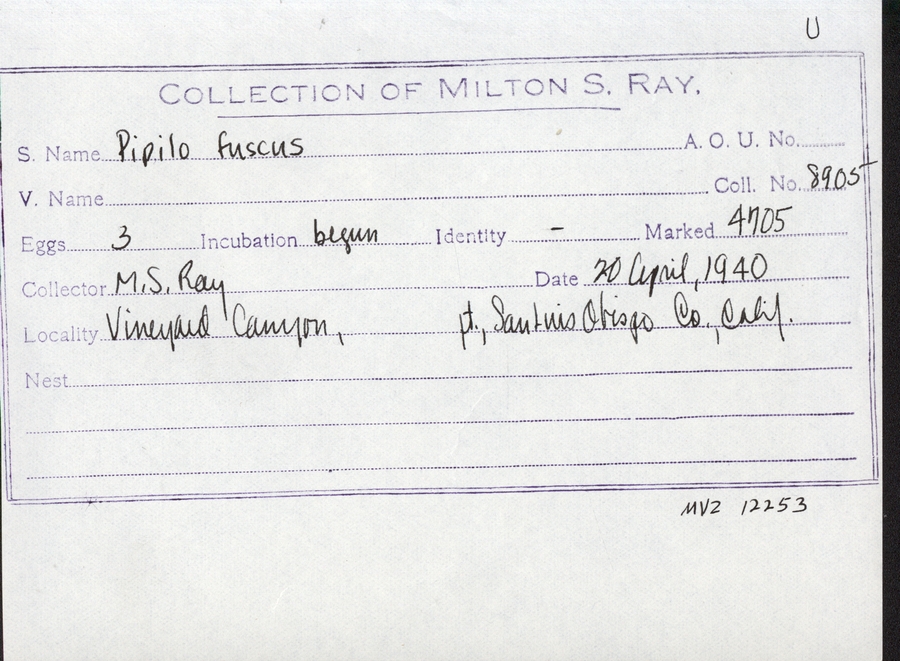 U
COLLECTION OF MILTON S. RAY.
S. Name Pipilo fuscus A. O. U. No.
V. Name Coll. No. 8905
Eggs 3 Incubation begun Identity - Marked 4705
Collector M.S. Ray Date 20 April, 1940
Locality Vineyard Canyon, pt., San Luis Obispo Co., Calif.
Nest
MVZ 12253